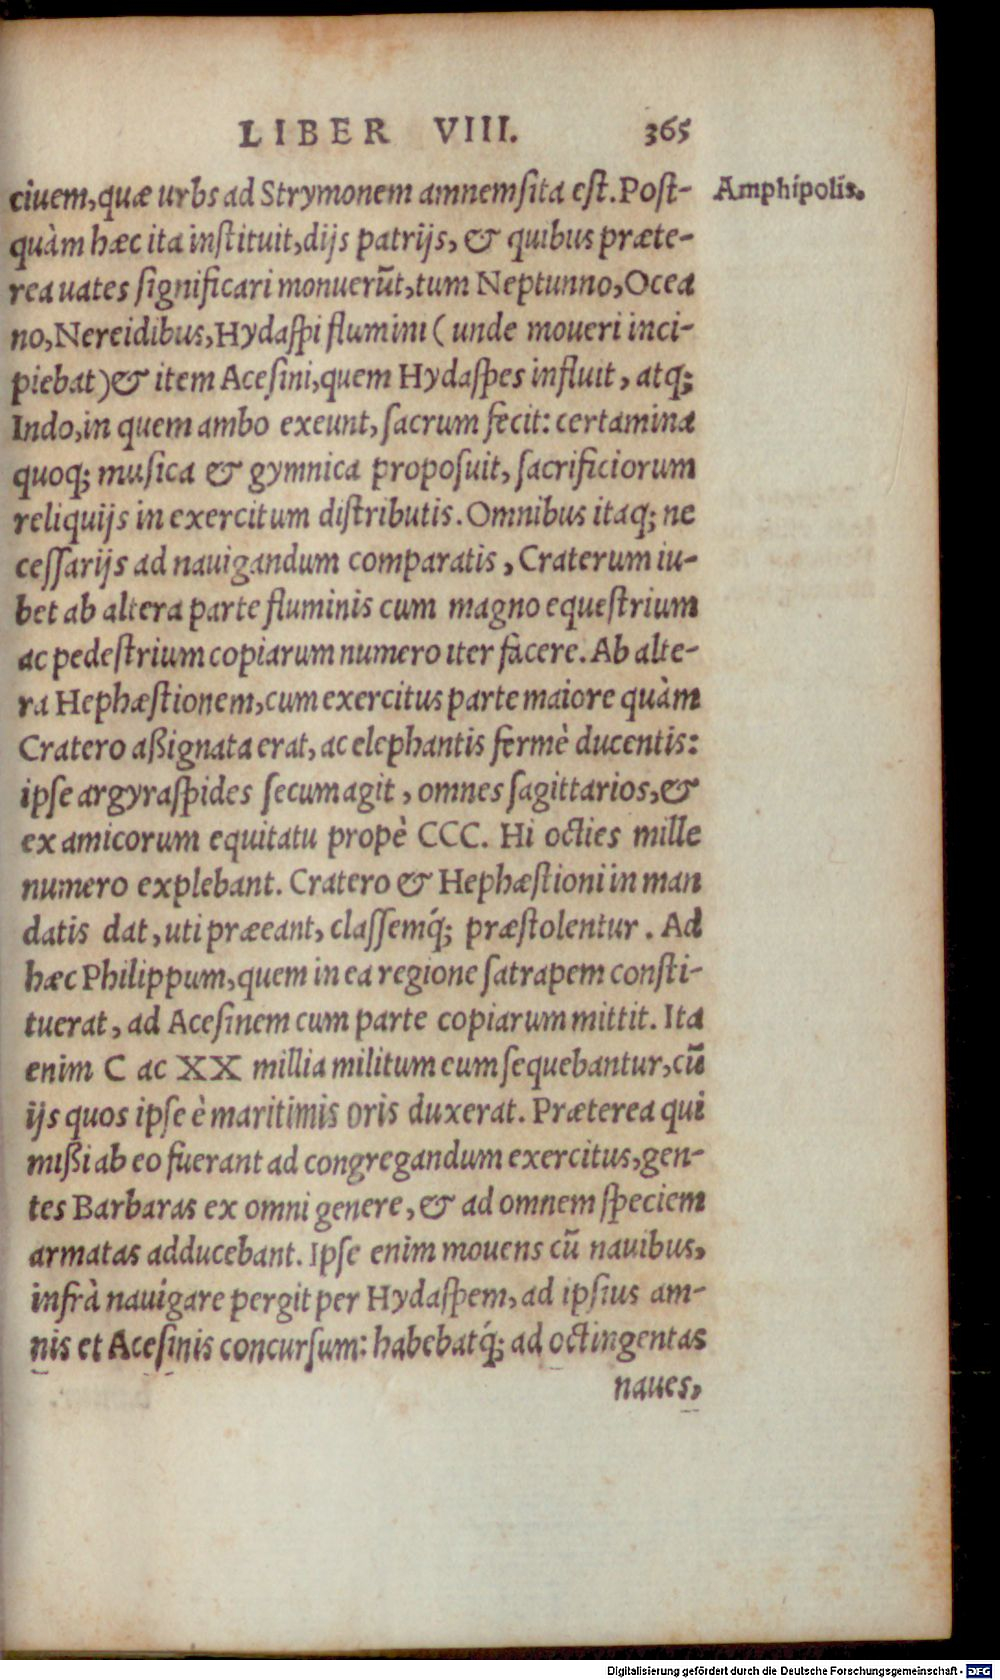 LIBER VIII. 365
ciuem,quæ urbs ad Strymonem amnem sita est.Post- Amphipolis.
quàm hæc ita instituit,dijs patrijs, & quibus præte-
rea uates significari monuerūt,tum Neptunno,Ocea
no,Nereidibus,Hydaspi flumini ( unde moueri inci-
piebat)& item Acesini,quem Hydaspes influit, atq;
Indo,in quem ambo exeunt, sacrum fecit: certamina
quoq; musica & gymnica proposuit, sacrificiorum
reliquijs in exercitum distributis. Omnibus itaq; ne
cessarijs ad nauigandum comparatis, Craterum iu-
bet ab altera parte fluminis cum magno equestrium
ac pedestrium copiarum numero iter facere. Ab alte-
ra Hephæstionem,cum exercitus parte maiore quàm
Cratero aßignata erat, ac elephantis fermè ducentis:
ipse argyraspides secum agit, omnes sagittarios,&
ex amicorum equitatu propè CCC. Hi octies mille
numero explebant. Cratero & Hephæstioni in man
datis dat, uti præeant, classemq́; præstolentur. Ad
hæc Philippum,quem in ea regione satrapem consti-
tuerat, ad Acesinem cum parte copiarum mittit. Ita
enim C ac XX millia militum eum sequebantur,cū
ijs quos ipse è maritimis oris duxerat. Præterea qui
mißi ab eo fuerant ad congregandum exercitus,gen-
tes Barbaras ex omni genere, & ad omnem speciem
armatas adducebant. Ipse enim mouens cū nauibus,
infrà nauigare pergit per Hydaspem, ad ipsius am-
nis et Acesinis concursum: habebatq́; ad octingentas
naues,
Digitalisierung gefördert durch die Deutsche Forschungsgemeinschaft - DFG